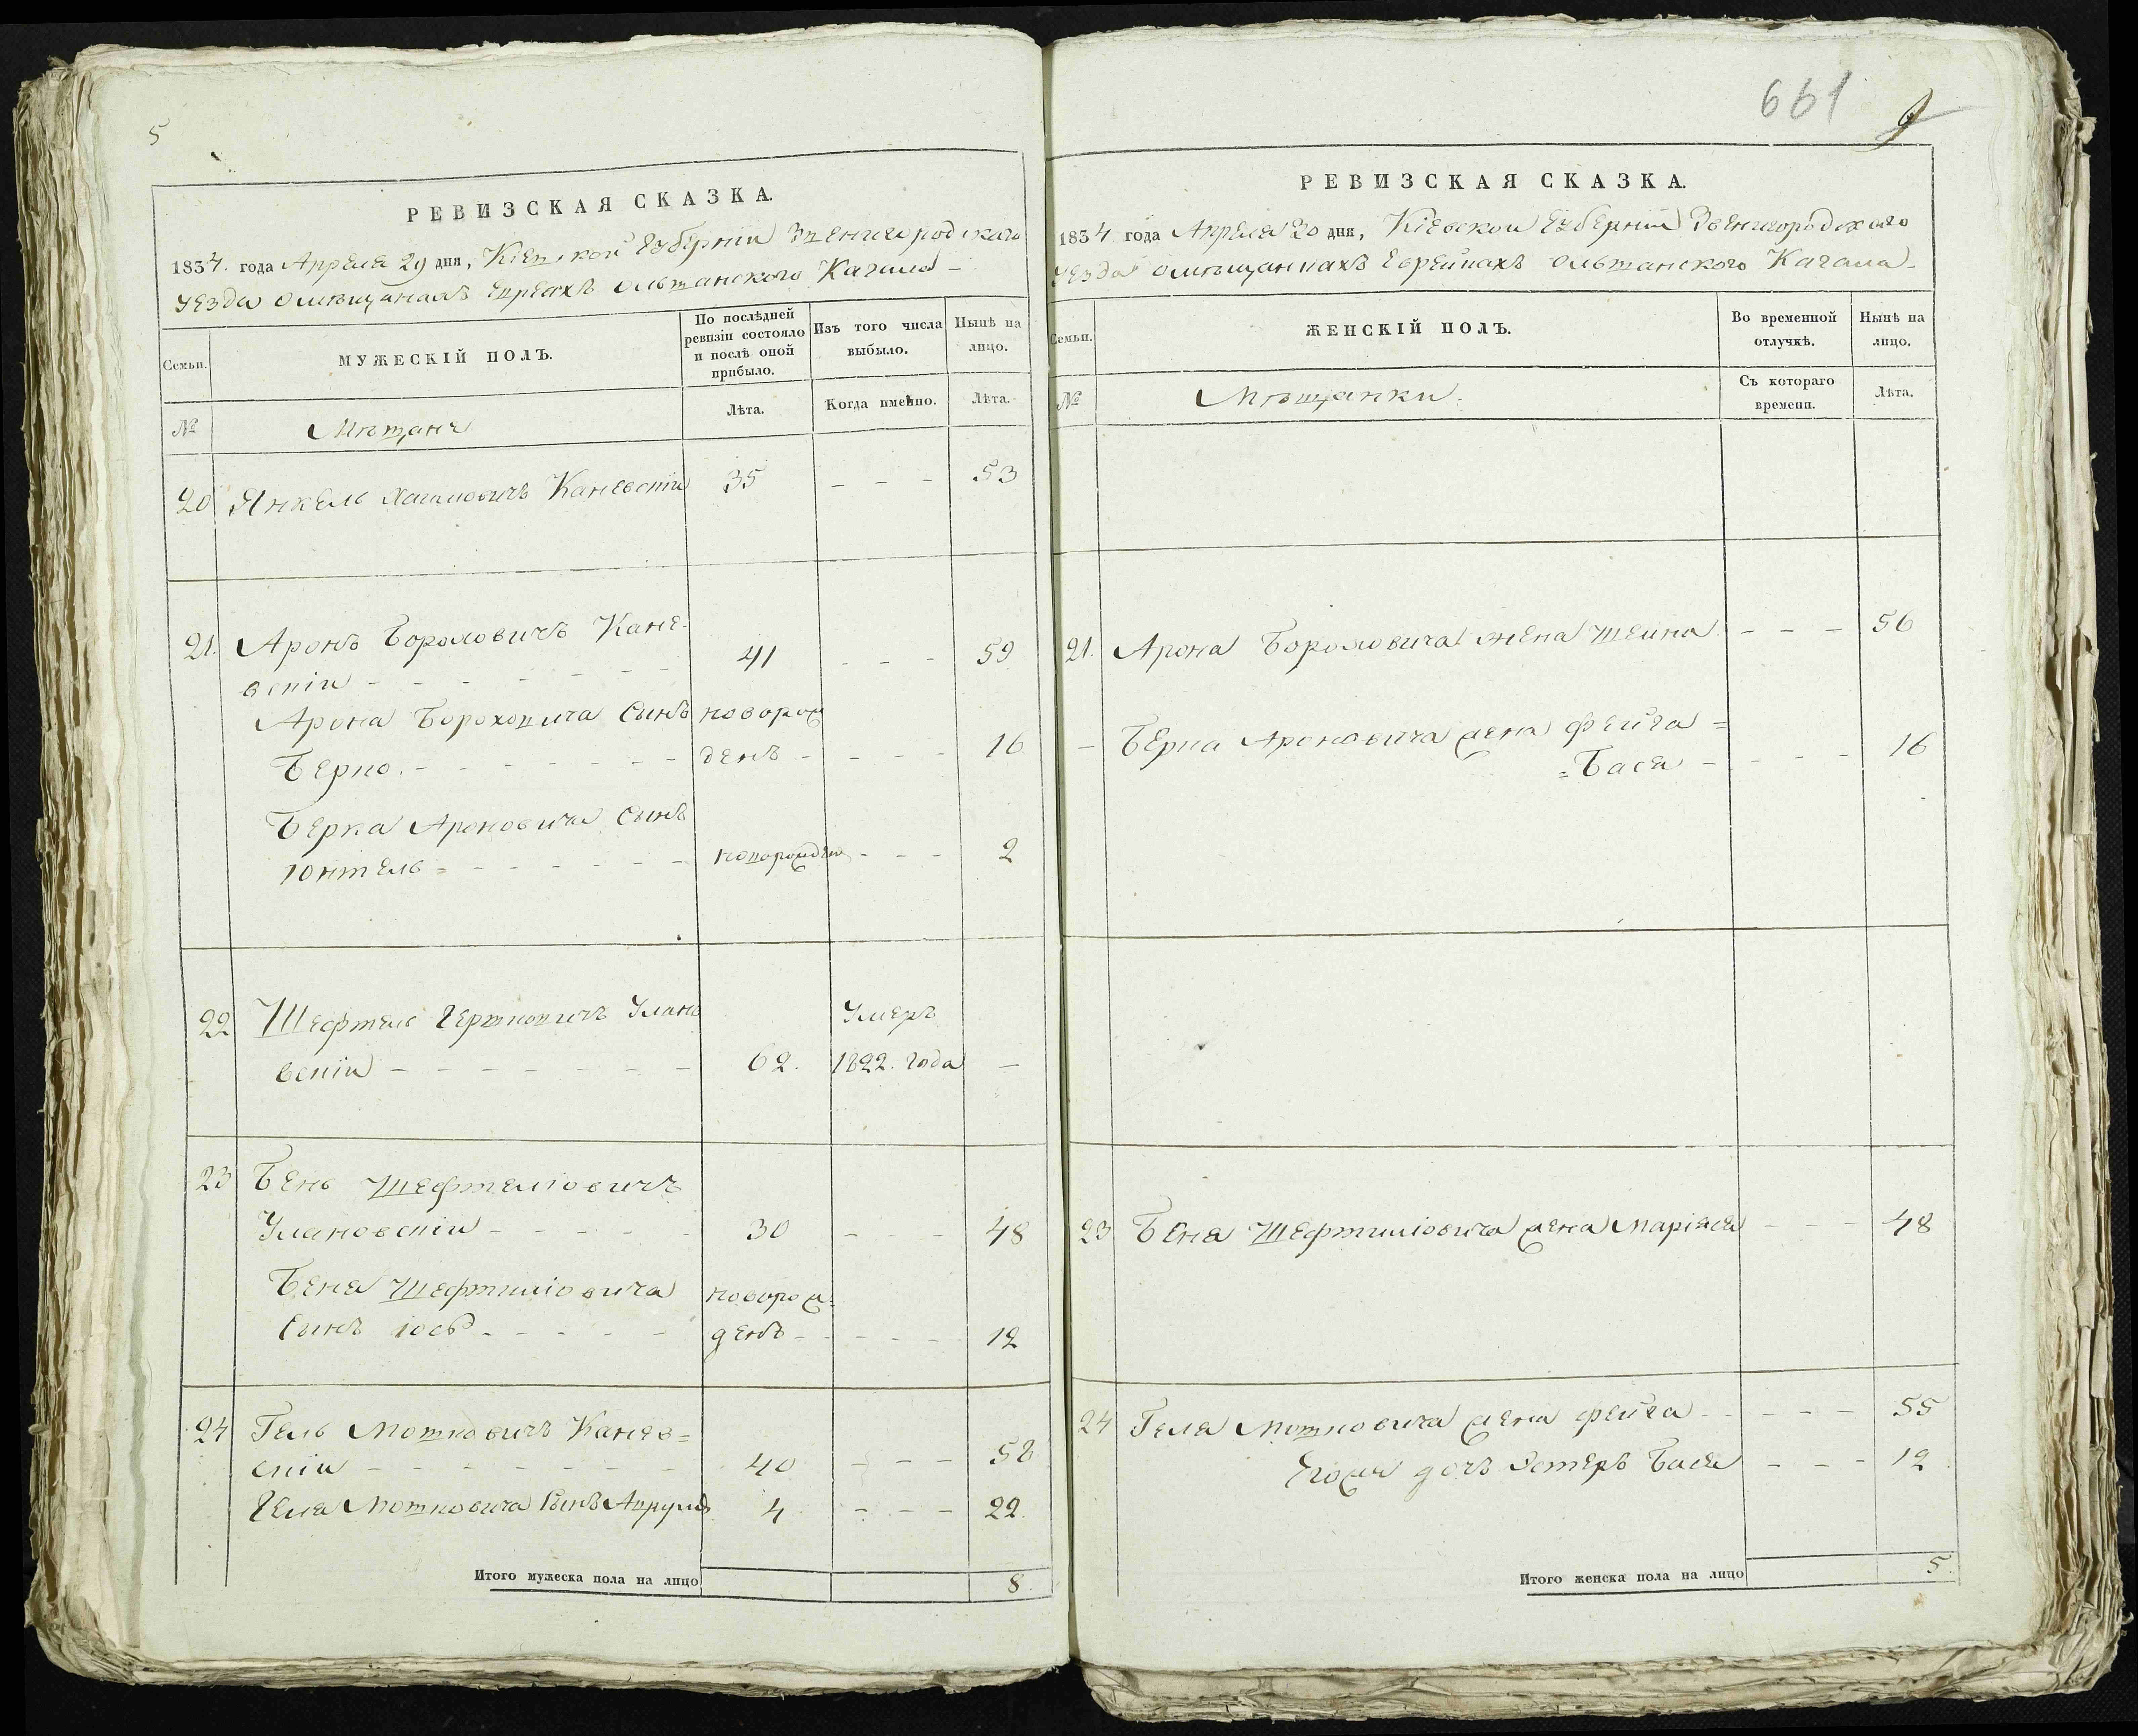 5
РЕВИЗСКАЯ СКАЗКА.
1834. года Апреля 29 дня, Кіевской Губерніи Звенигородскаго
уезда омѣщанахъ Евреахъ Ольшанского Кагала -
Семьи.
МУЖЕСКІЙ ПОЛЪ.
По послѣдней ревизіи состояло и послѣ оной прибыло.
Изъ того числа выбыло.
Нынѣ на лицо.
№
Мѣщане
Лѣта.
Когда именно.
Лѣта.
20 Янкель Хаимовичъ Каневскіи 35 - - - 53
21. Аронъ Бороховичъ Кане-
вскіи - - - - - - - 41 - - - 59
Арона Бороховича Сынъ новорож
Берко. - - - - - - - денъ - - - - 16
Берка Ароновича Сынъ
Юнтель = - - - - - - новорожден - - - 2
22 Шефтель Гершковичъ Улано Умеръ
вскіи - - - - - - - 62. 1822. года -
23 Бень Шефтеліовичъ
Улановскіи - - - - - 30 - - - 48
Беня Шефтиліовича новорож=
Сынъ Іось - - - - - денъ - - - - 12
24 Гель Мошковичъ Канев=
скіи - - - - - - - - 40 - - - 58
Геля Мошковича Сынъ Аврумъ 4 - - - 22.
Итого мужеска пола на лицо 8.
661
РЕВИЗСКАЯ СКАЗКА.
1834 года Апреля 20 дня, Кіевскои Губерніи Звенигородскаго
уезда омѣщанкахъ Еврейкахъ Ольшанского Кагала -
Семьи.
ЖЕНСКІЙ ПОЛЪ.
Во временной отлучкѣ.
Нынѣ на лицо.
№
Мѣщанки.
Съ котораго времени.
Лѣта.
21. Арона Бороховича жена Шейна - - - 56
- Берка Ароновича жена Фейга =
= Бася - - - - 16
23 Беня Шефтиліовича жена Маріася - - - 48
24 Геля Мошковича жена Фейга - - - - 55
Егоже дочь Эстеръ Бася - - - 12
Итого женска пола на лицо 5.